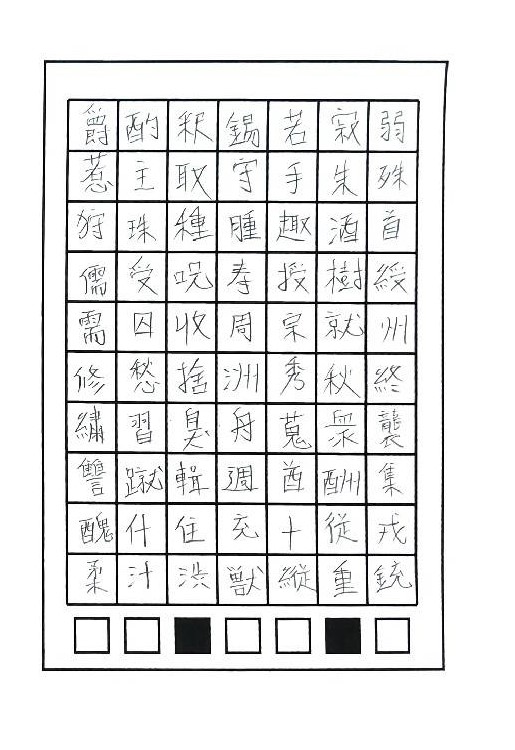 爵酌釈錫若寂弱
惹主取守手朱殊
狩珠種腫趣酒首
儒受呪寿授樹綬
需囚収周宗就州
修愁捨洲秀秋終
繍習臭舟蒐衆襲
讐蹴輯週酋酬集
醜什住充十従戎
柔汁渋獣縦重銃